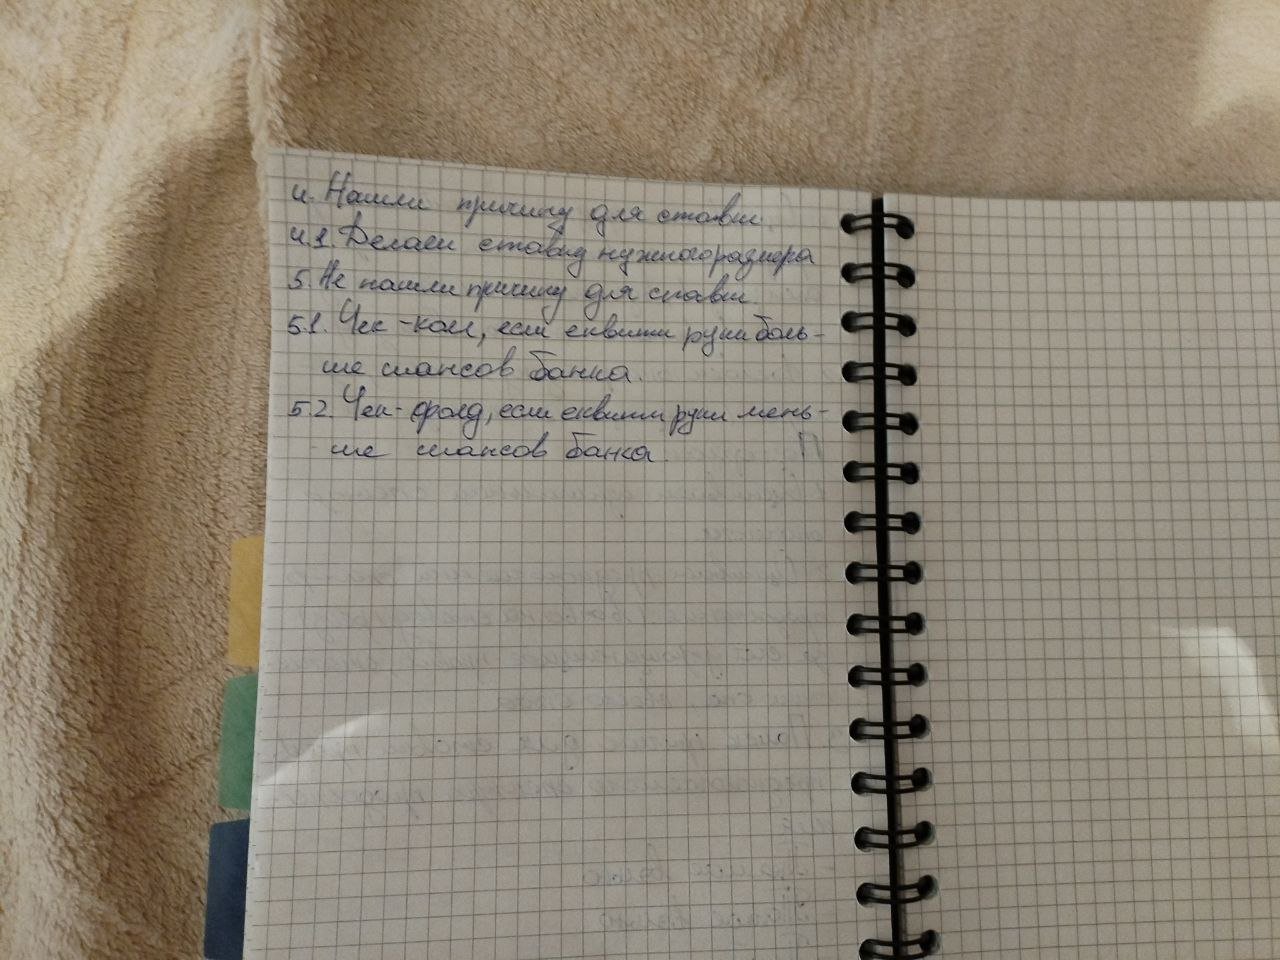 4. Нашли причину для ставки.
4.1. Делаем ставку нужного размера
5. Не нашли причину для ставки.
5.1. Чек-колл, если еквити руки боль-
ше шансов банка.
5.2. Чек-фолд, если еквити руки мень-
ше шансов банка.